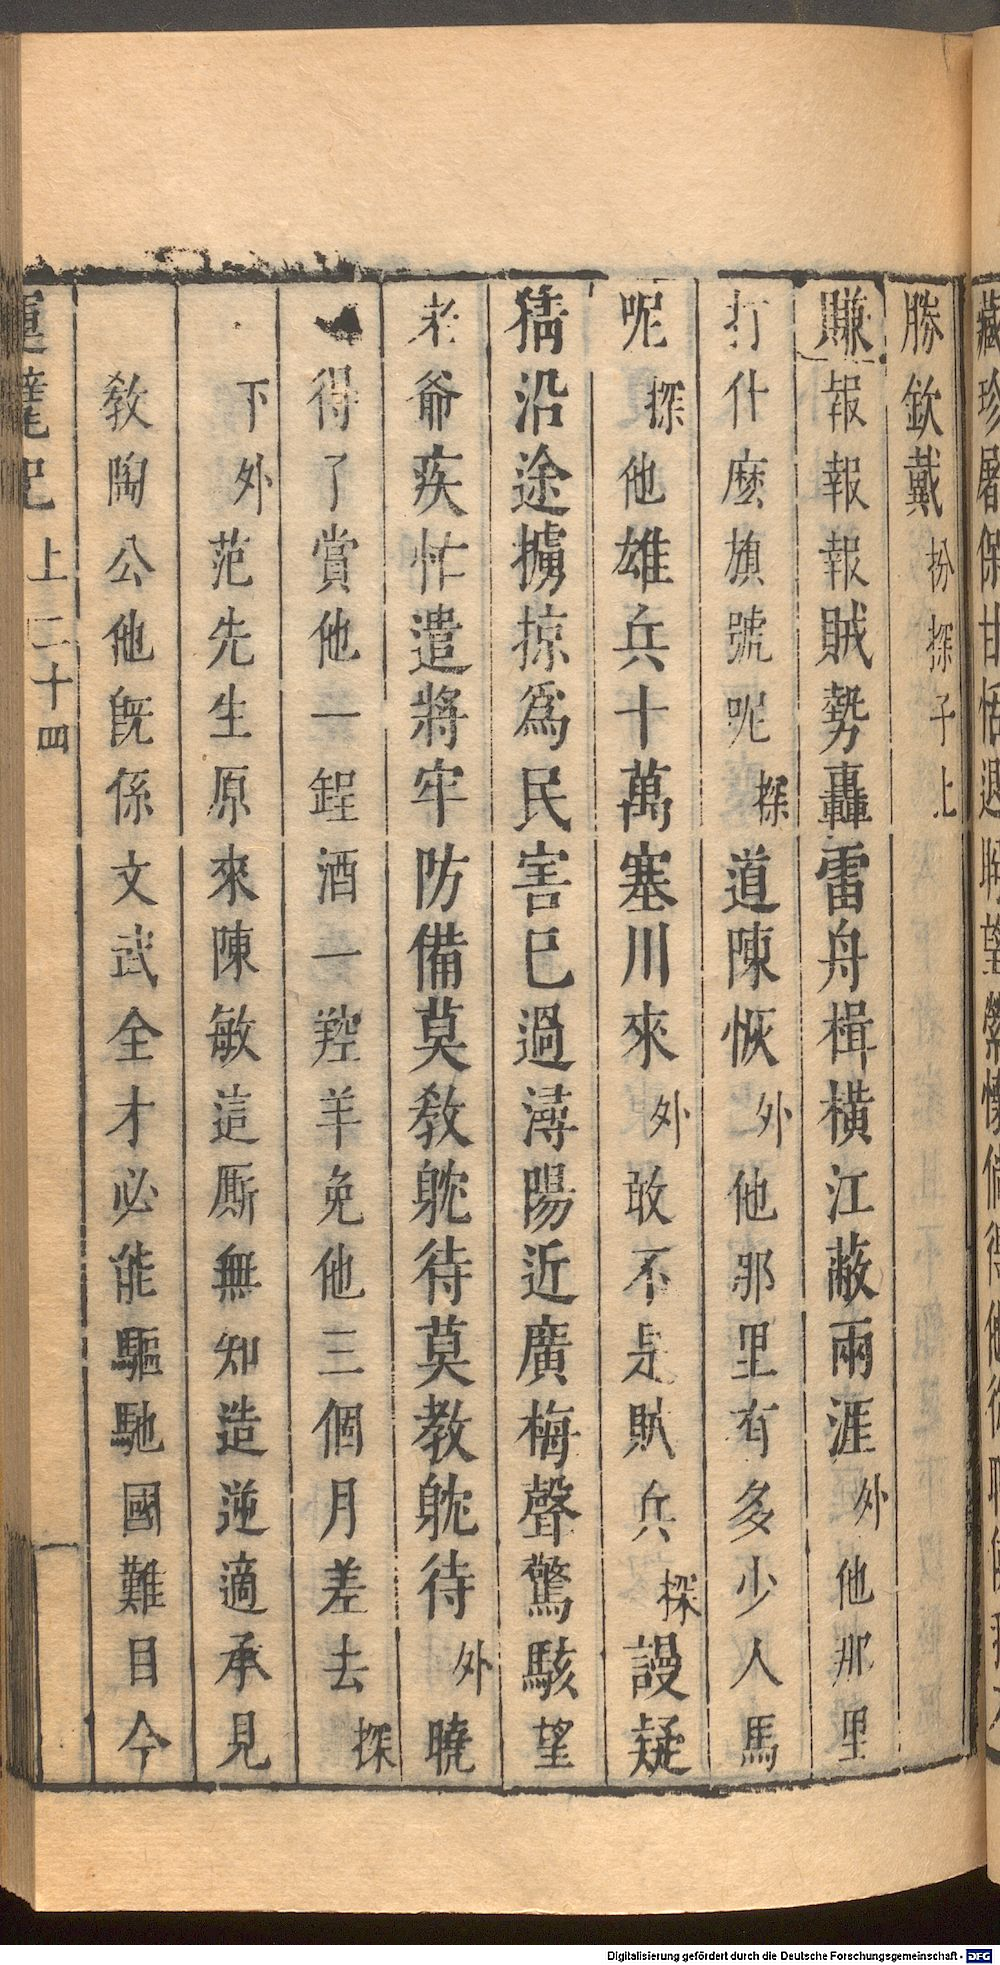 勝欽戴扮探子上
賺報報報賊勢轟雷舟楫橫江蔽兩涯外他那里
打什麽旗號呢探道陳恢外他那里有多少人馬
呢探他雄兵十萬塞川來外敢不是賊兵探謾疑
猜沿途擄掠爲民害已過潯陽近廣梅聲驚駭望
老爺疾忙遣將牢防備莫教躭待莫教躭待外曉
得了賞他一鋥酒一羫羊免他三個月差去探
下外范先生原來陳敏這厮無知造逆適承見
教陶公他既係文武全才必能驅馳國難目今
運甓記 上 二十四
Digitalisierung gefördert durch die Deutsche Forschungsgemeinschaft - DFG